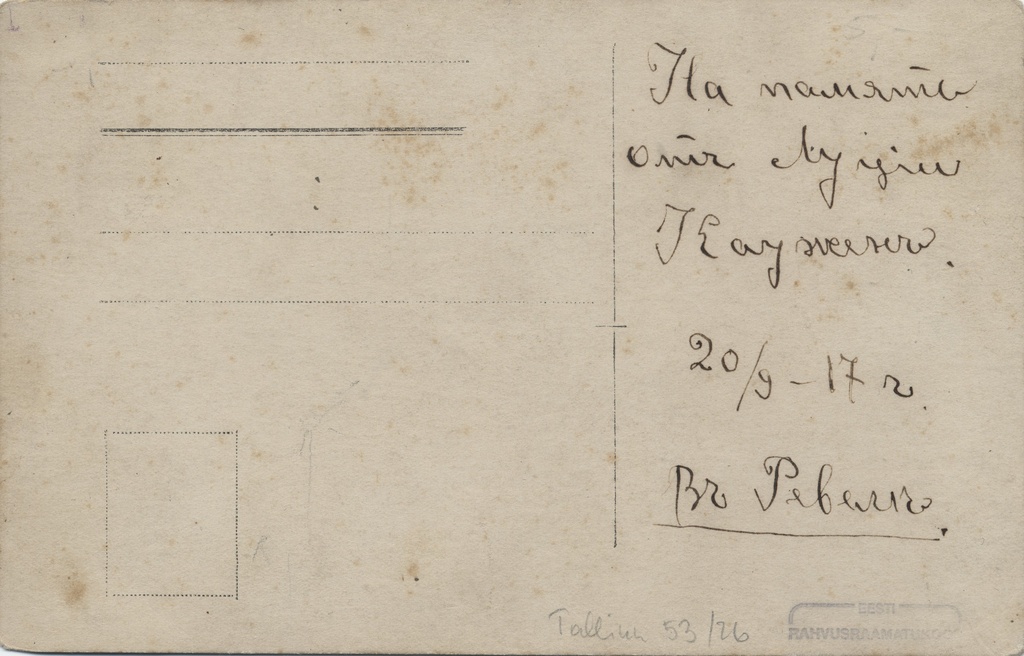 На память
отъ Луціи
Каужень.
20/9 - 17 г.
Въ Ревелъ.
Tallinn 53/26
EESTI
RAHVUSRAAMATUKOGU